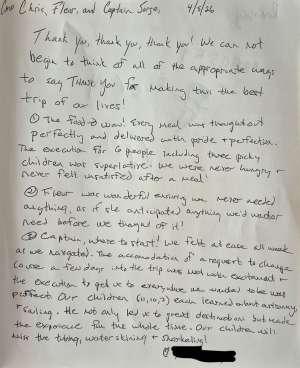 Chris, Fleur, and Captain Serge, 4/5/26
Thank you, thank you, thank you! We can not
begin to think of all of the appropriate ways
to say THANK YOU for making this the best
trip of our lives!
① The food - wow! Every meal was thought out
perfectly and delivered with pride + perfection.
The execution for 6 people including three picky
children was superlative. We were never hungry +
never felt unsatisfied after a meal!
② Fleur was wonderful ensuring we never needed
anything, as if she anticipated anything we'd want or
need before we thought of it!
③ Captain, where to start! We felt at ease all week
as we navigated. The accomodation of a request to change
course a few days into the trip was met with excitement +
the execution to get us to everywhere we wanted to be was
perfect. Our children (11, 10, 7) each learned about
+ sailing. He not only led us to great destinations but made
the experience fun the whole time. Our children will
miss the tubing, water skiing + snorkeling!